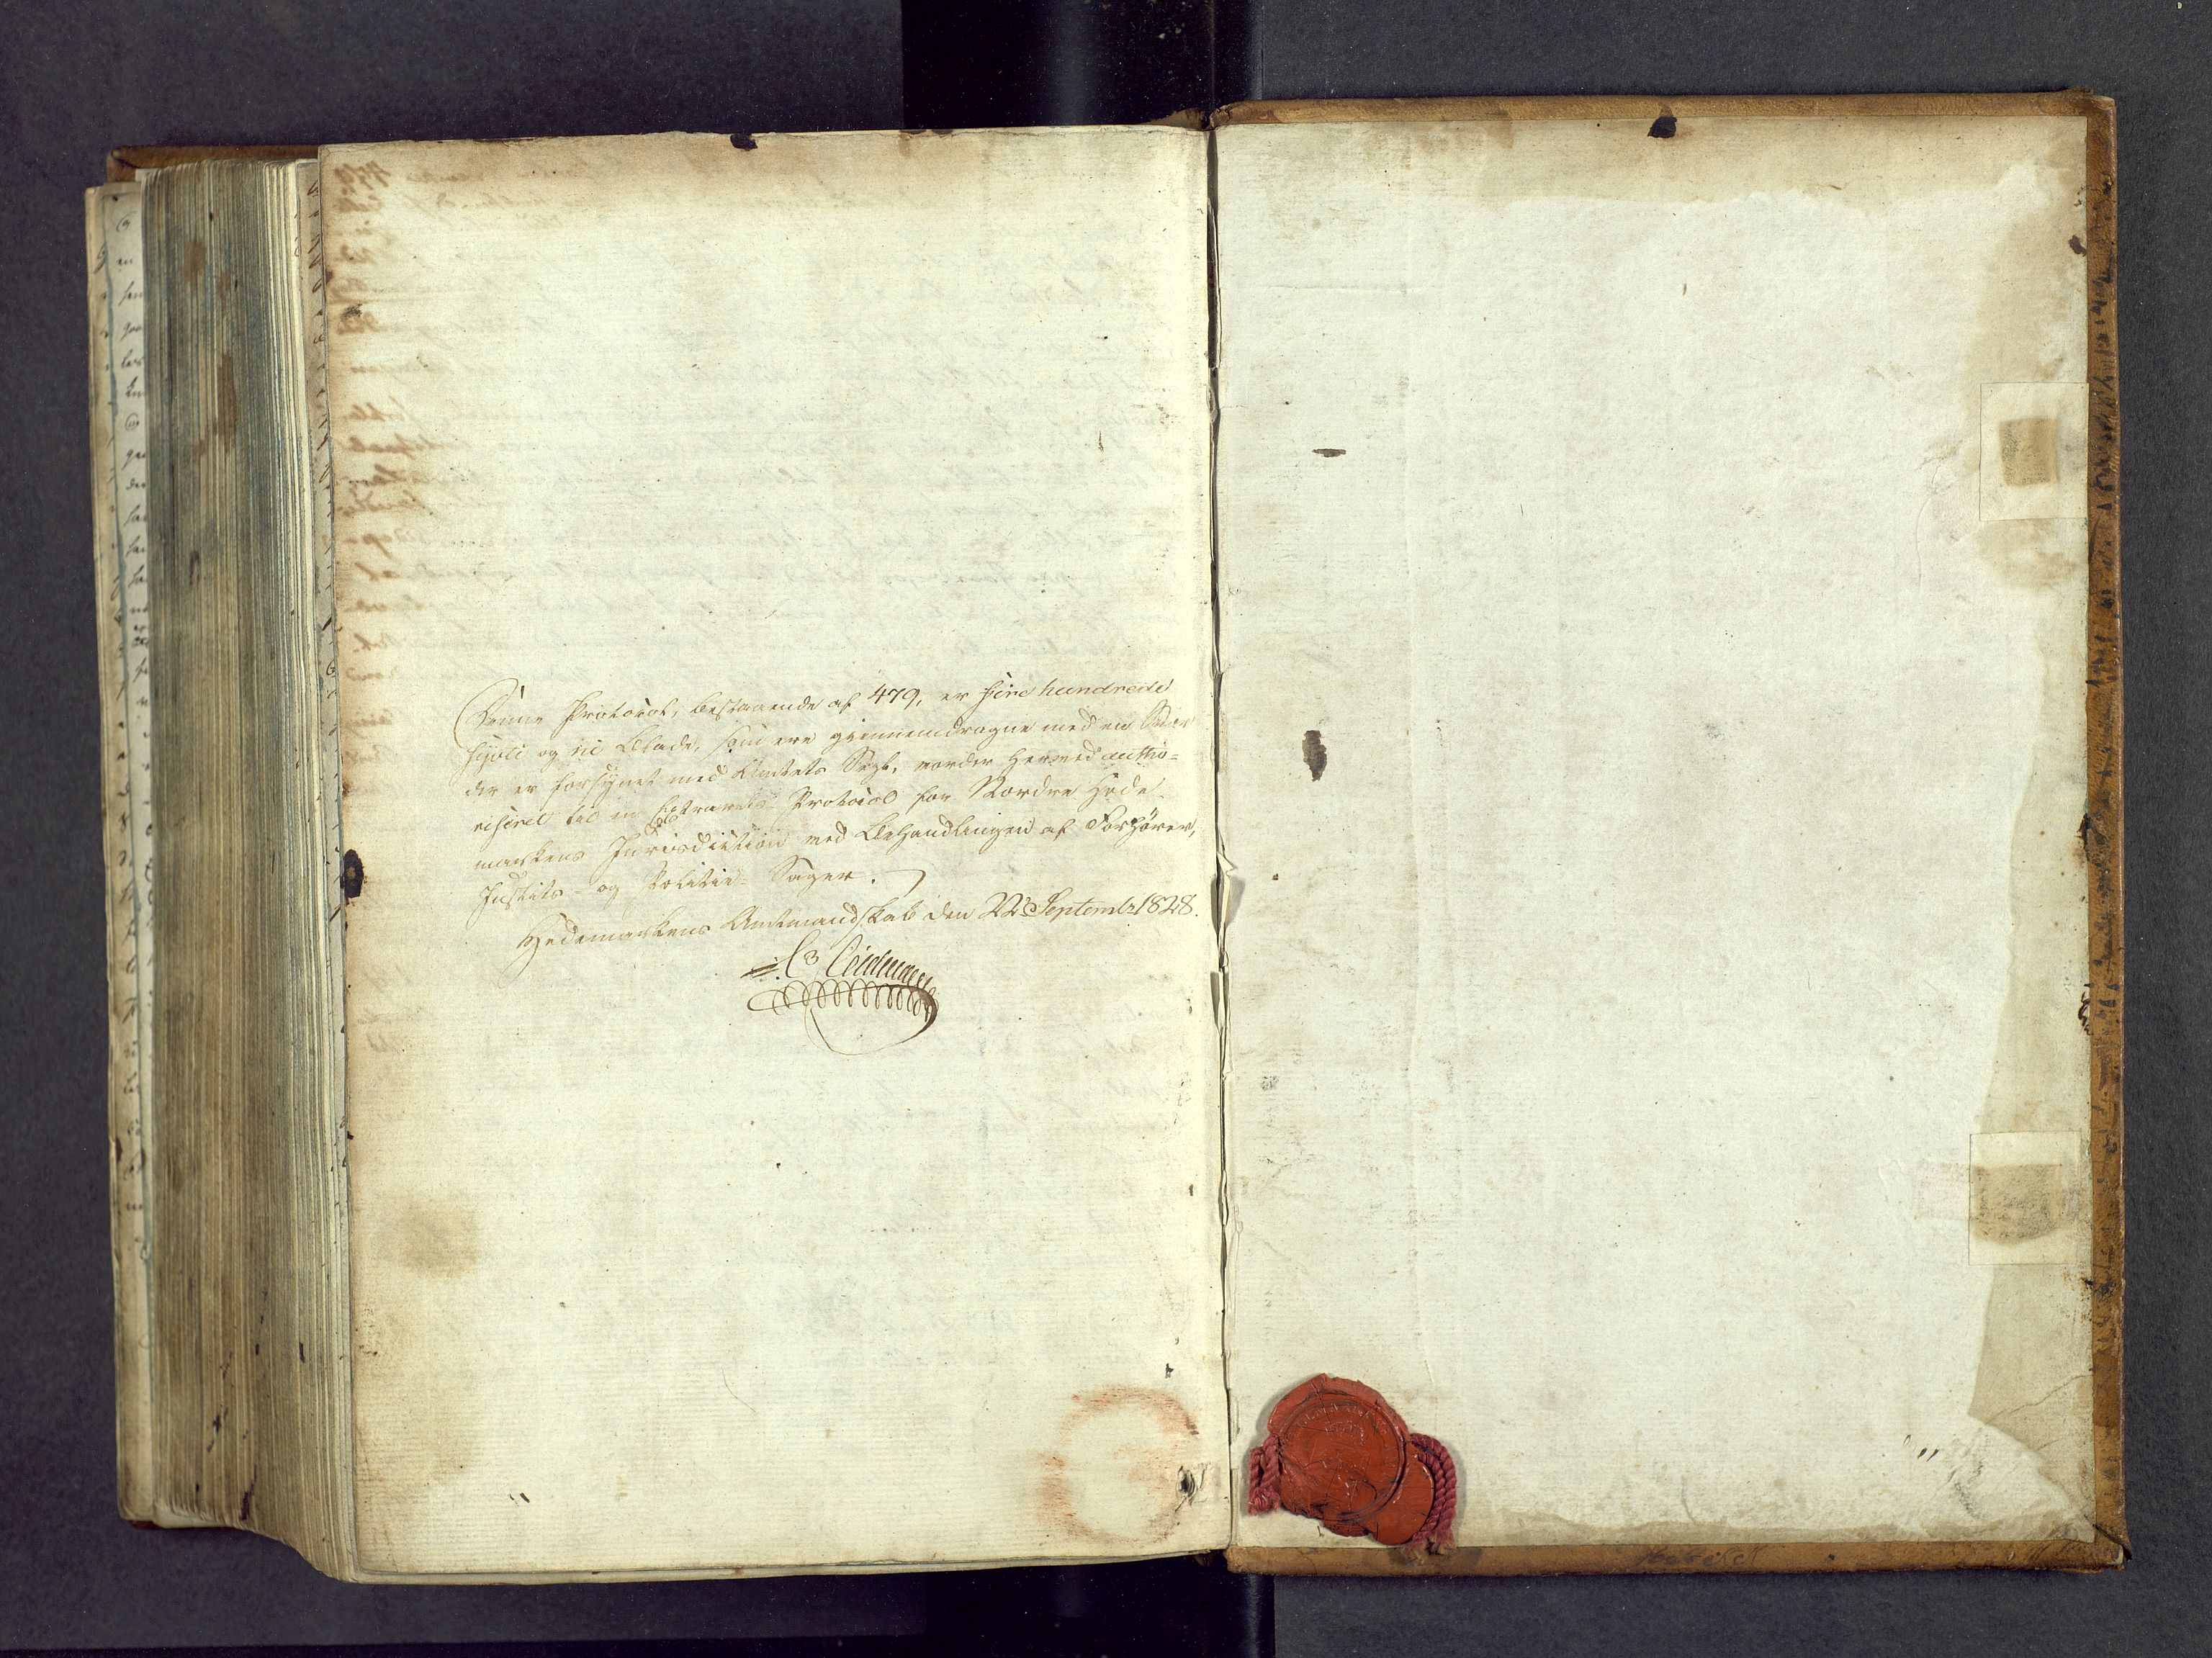 Denne Protocol, bestaaende af 479, er fire hundrede
syvti og ni Blade, som ere giennemdragne med en Snor
der er forsynet med Amtets Segl, vorder herved autho-
riseret til en Extrarets-Protocol for Nordre Hede-
markens Jurisdiction ved Behandlingen af Forhører,
Justits- og Politie-Sager.
Hedemarkens Amtmandskab den 22de Septembr 1828.